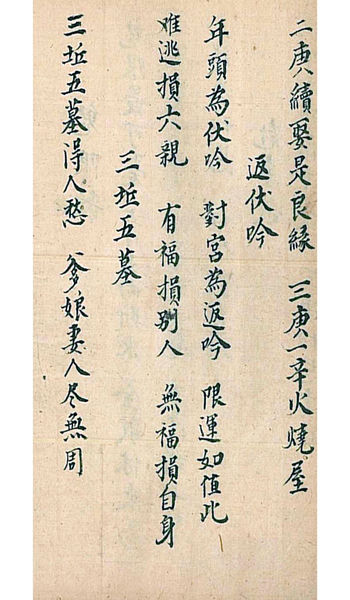 二庚續娶是良緣 三庚一辛火燒屋
返伏吟
年頭為伏吟 對宮為返吟 限運如值此
难逃損六親 有福損别人 無福損自身
三坵五墓
三坵五墓得人愁 爹娘妻人尽無周